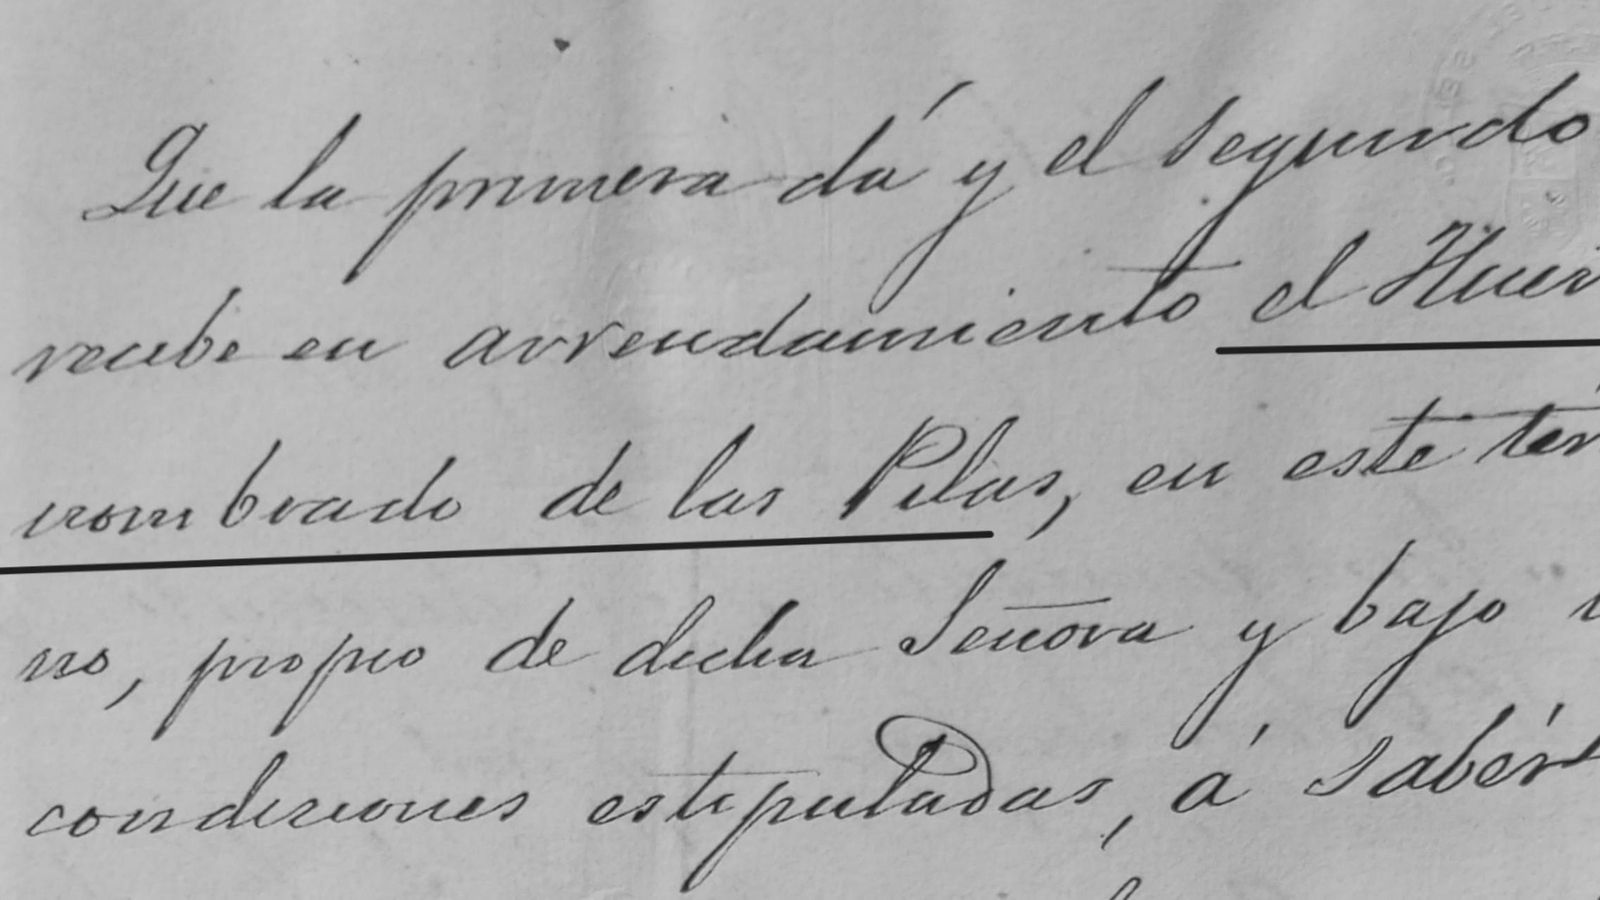 Que la primera dá y el segundo
recibe en arrendamiento el Huer
nombrado de las Pilas, en este tér
no, propio de dicha Señora y bajo
condiciones estipuladas, á sabér